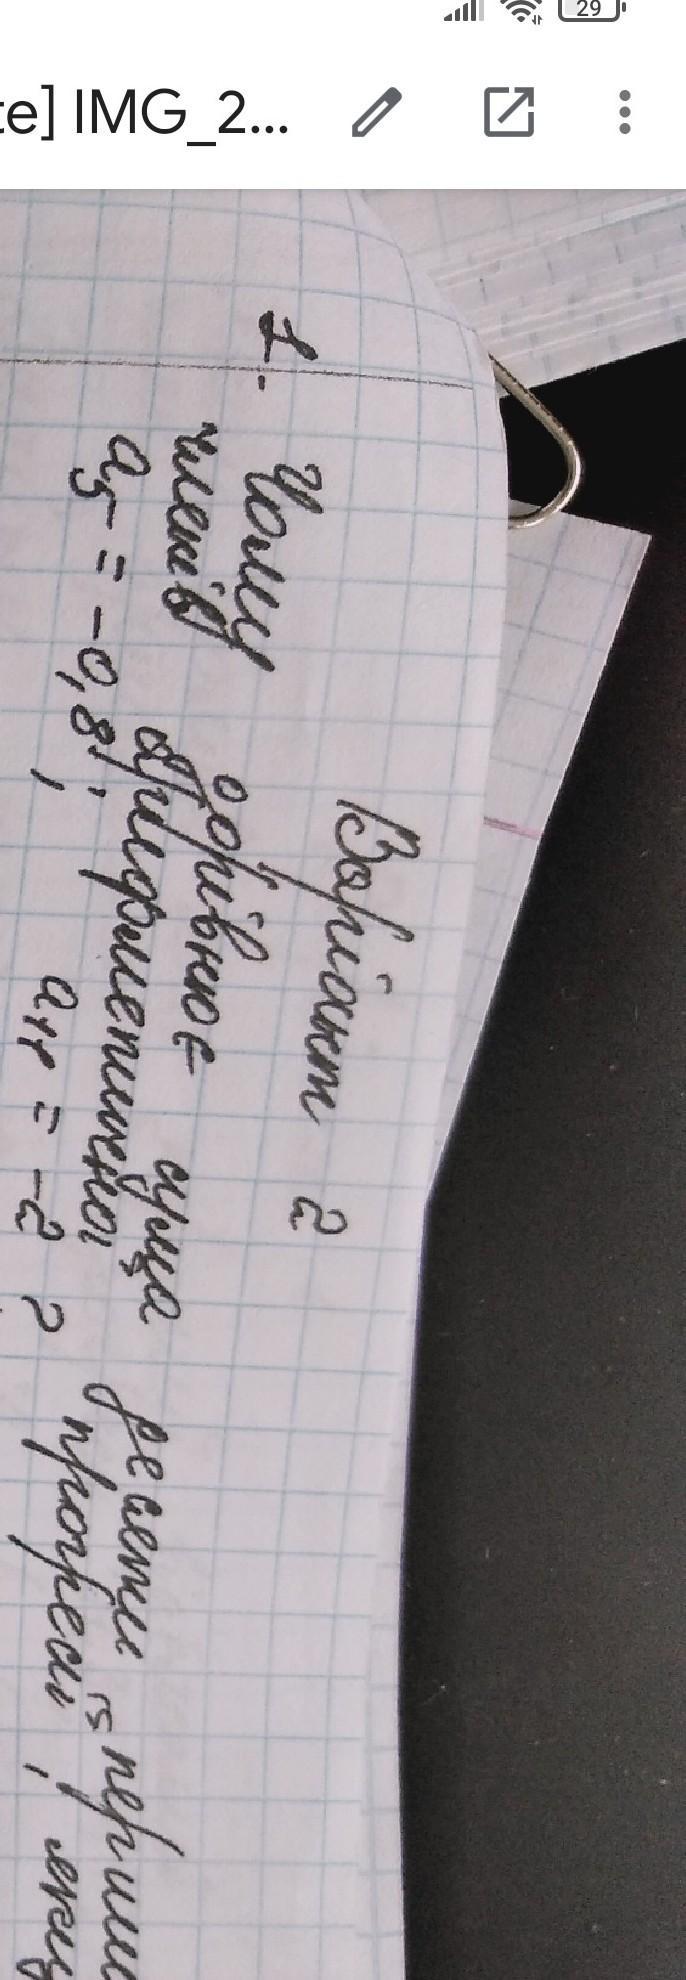 29
te] IMG_2...
Варіант 2
1. Чому дорівнює сума десяти із перших
членів арифметичної прогресії, якщ
a₅ = -0,8; a₁₁ = -2 ?